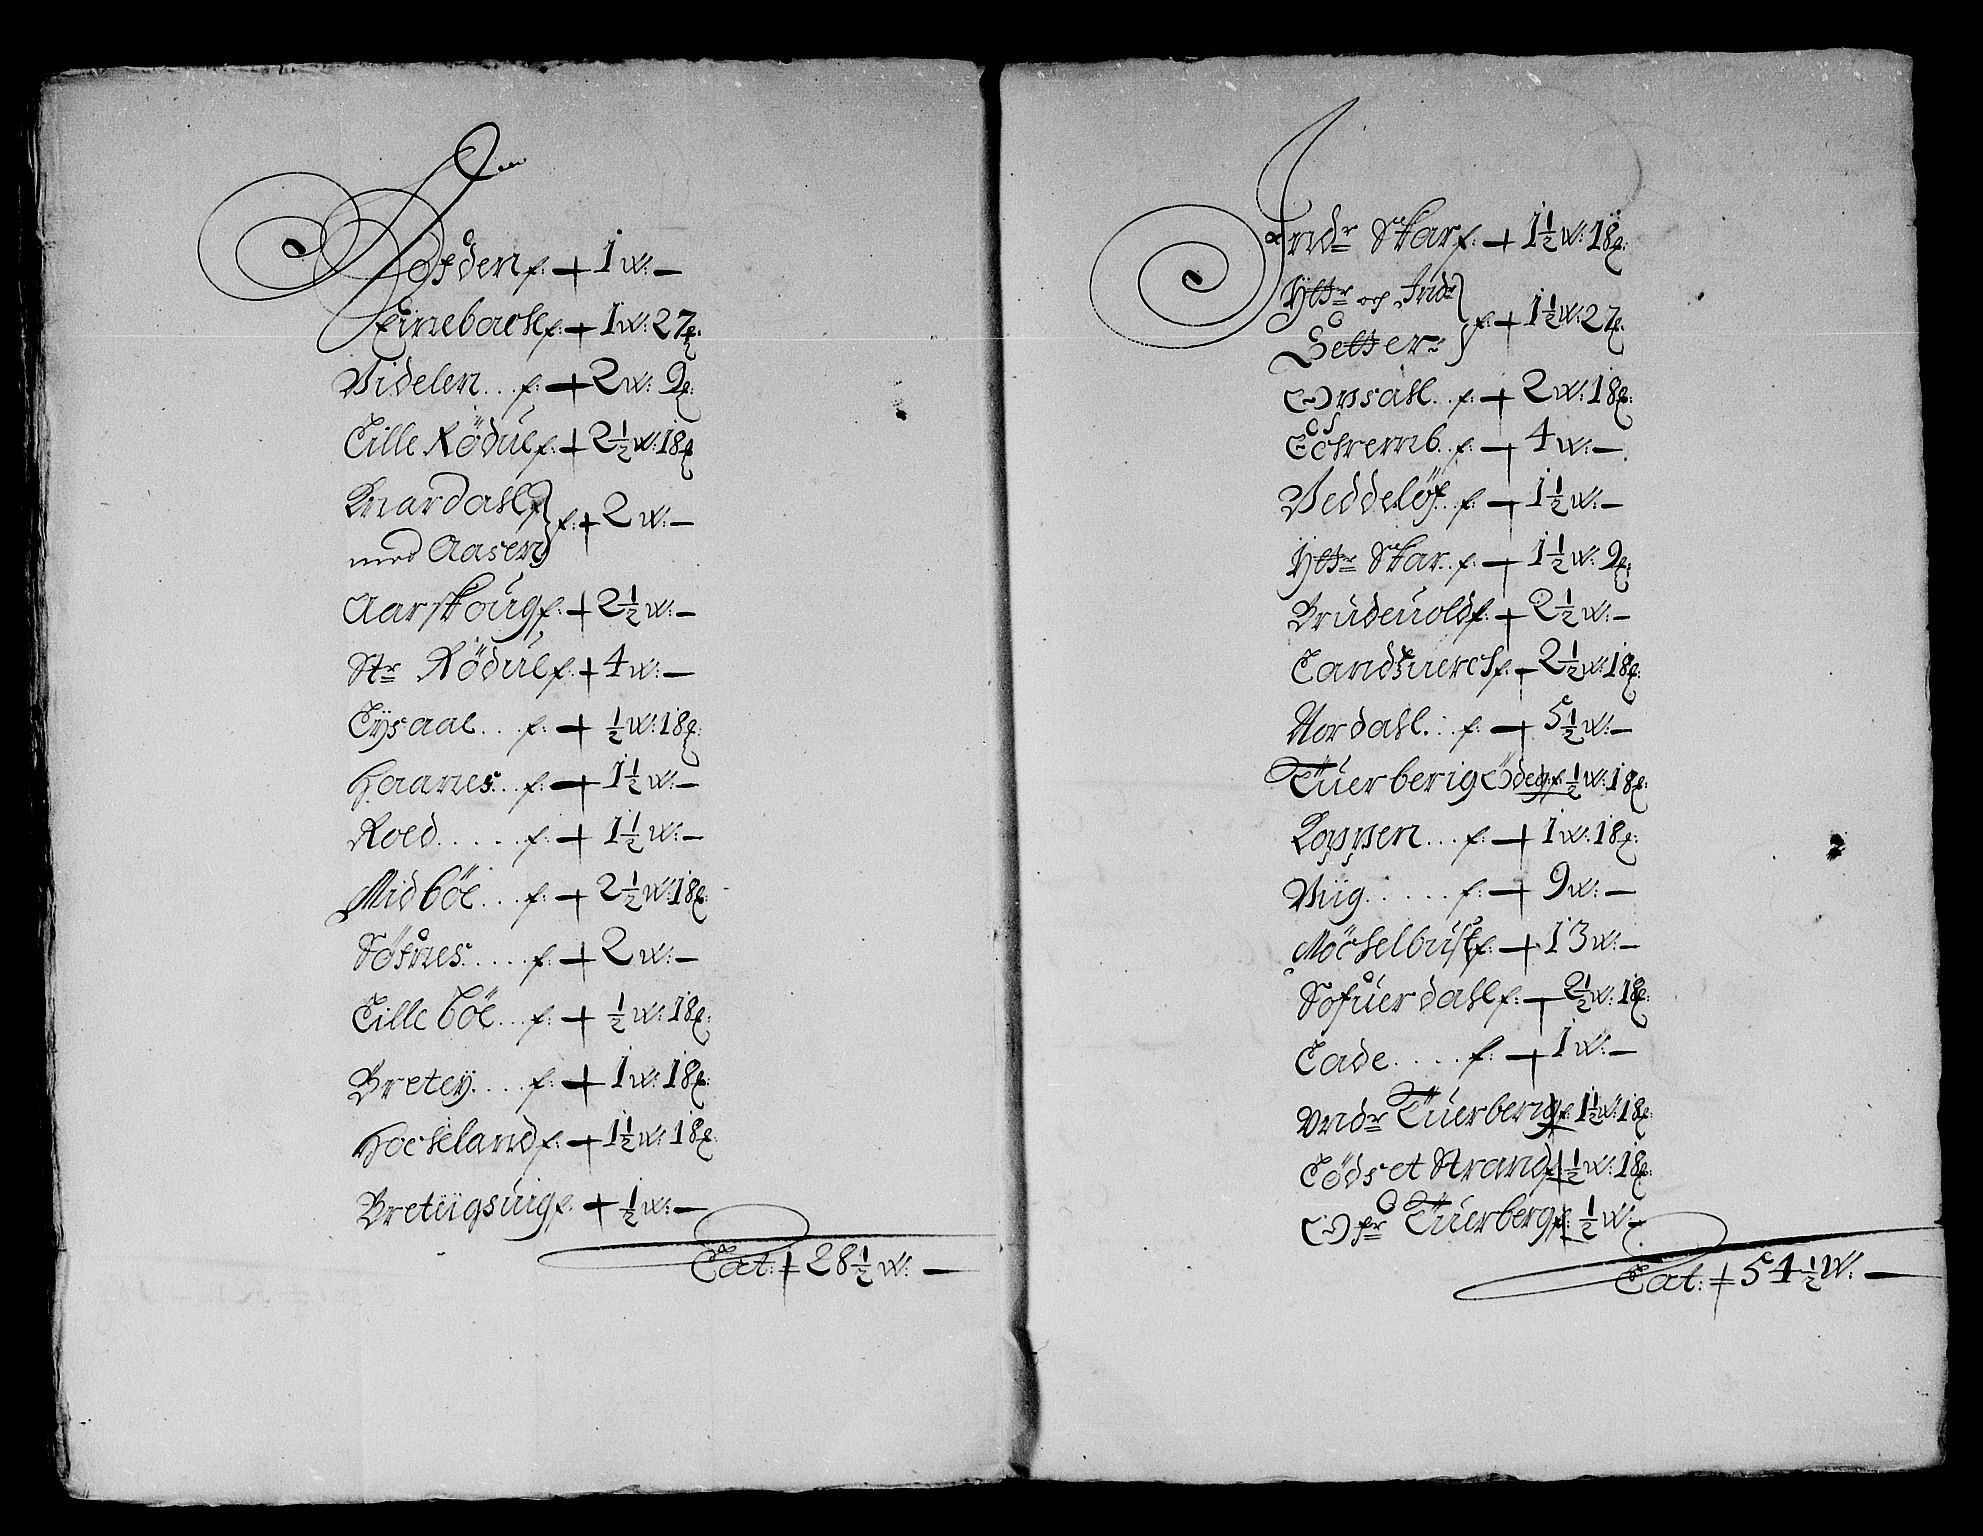 Aasden f: + 1 w: —
Linneback f: + 1 w: 27 ℔:
Videlen .. f: + 2 w: 9 ℔:
Lille Rödul f: + 2½ w: 18 ℔
Knardahl
med Aasen } f: + 2 w: —
Aarskoug f: + 2½ w: —
Str Rödul f: + 4 w: —
Lysaal ... f: + ½ w: 18 ℔:
Haanes .. f: + 1½ w: —
Roed ..... f: + 1½ w: —
Midböe ... f: + 2½ w: 18 ℔:
Söfnes ..... f: + 2 w: —
Lille böe ... f: + ½ w: 18 ℔:
Bretey .... f: + 1 w: 18 ℔:
Hockeland f: + 1½ w: 18 ℔:
Bretiigsuig f: + ½ w: —
Lat: + 28½ w: —
Indr Skar f: + 1½ w: 18 ℔:
Yttr och Indr
Setter: } f: + 1½ w: 27 ℔:
Opsahl .. f: + 2 w: 18 ℔:
Eckremb .. f: + 4 w: —
Veddeløf .. f: + 1½ w: —
Yttr Skar .. f: + 1½ w: 9 ℔:
Brudeuold f: + 2½ w: —
Landzuerch f: + 2½ w: 18 ℔:
Nordahl .. f: + 5½ w: —
Tuerberig Ödeg: f: ½ w: 18 ℔:
Koppen ... f: + 1 w: 18 ℔:
Viig ..... f: + 9 w: —
Möckelbust f: + 13 w: —
Sofuerdahl f: + 2½ w: 18 ℔:
Lade ..... f: + 1 w: —
Vndr Tuerberig f: 1½ w: 18 ℔:
Lödset Strand f: ½ w: 18 ℔:
Ofr Tuerberg f: ½ w —
Lat: + 54½ W: —